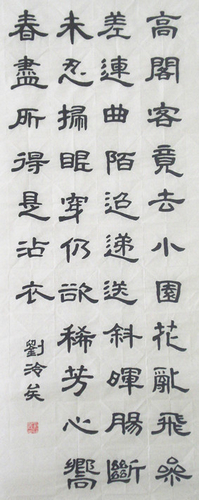 高閣客竟去小園花亂飛參
差連曲陌迢遞送斜暉腸斷
未忍掃眼穿仍欲稀芳心嚮
春盡所得是沾衣
劉泠矣